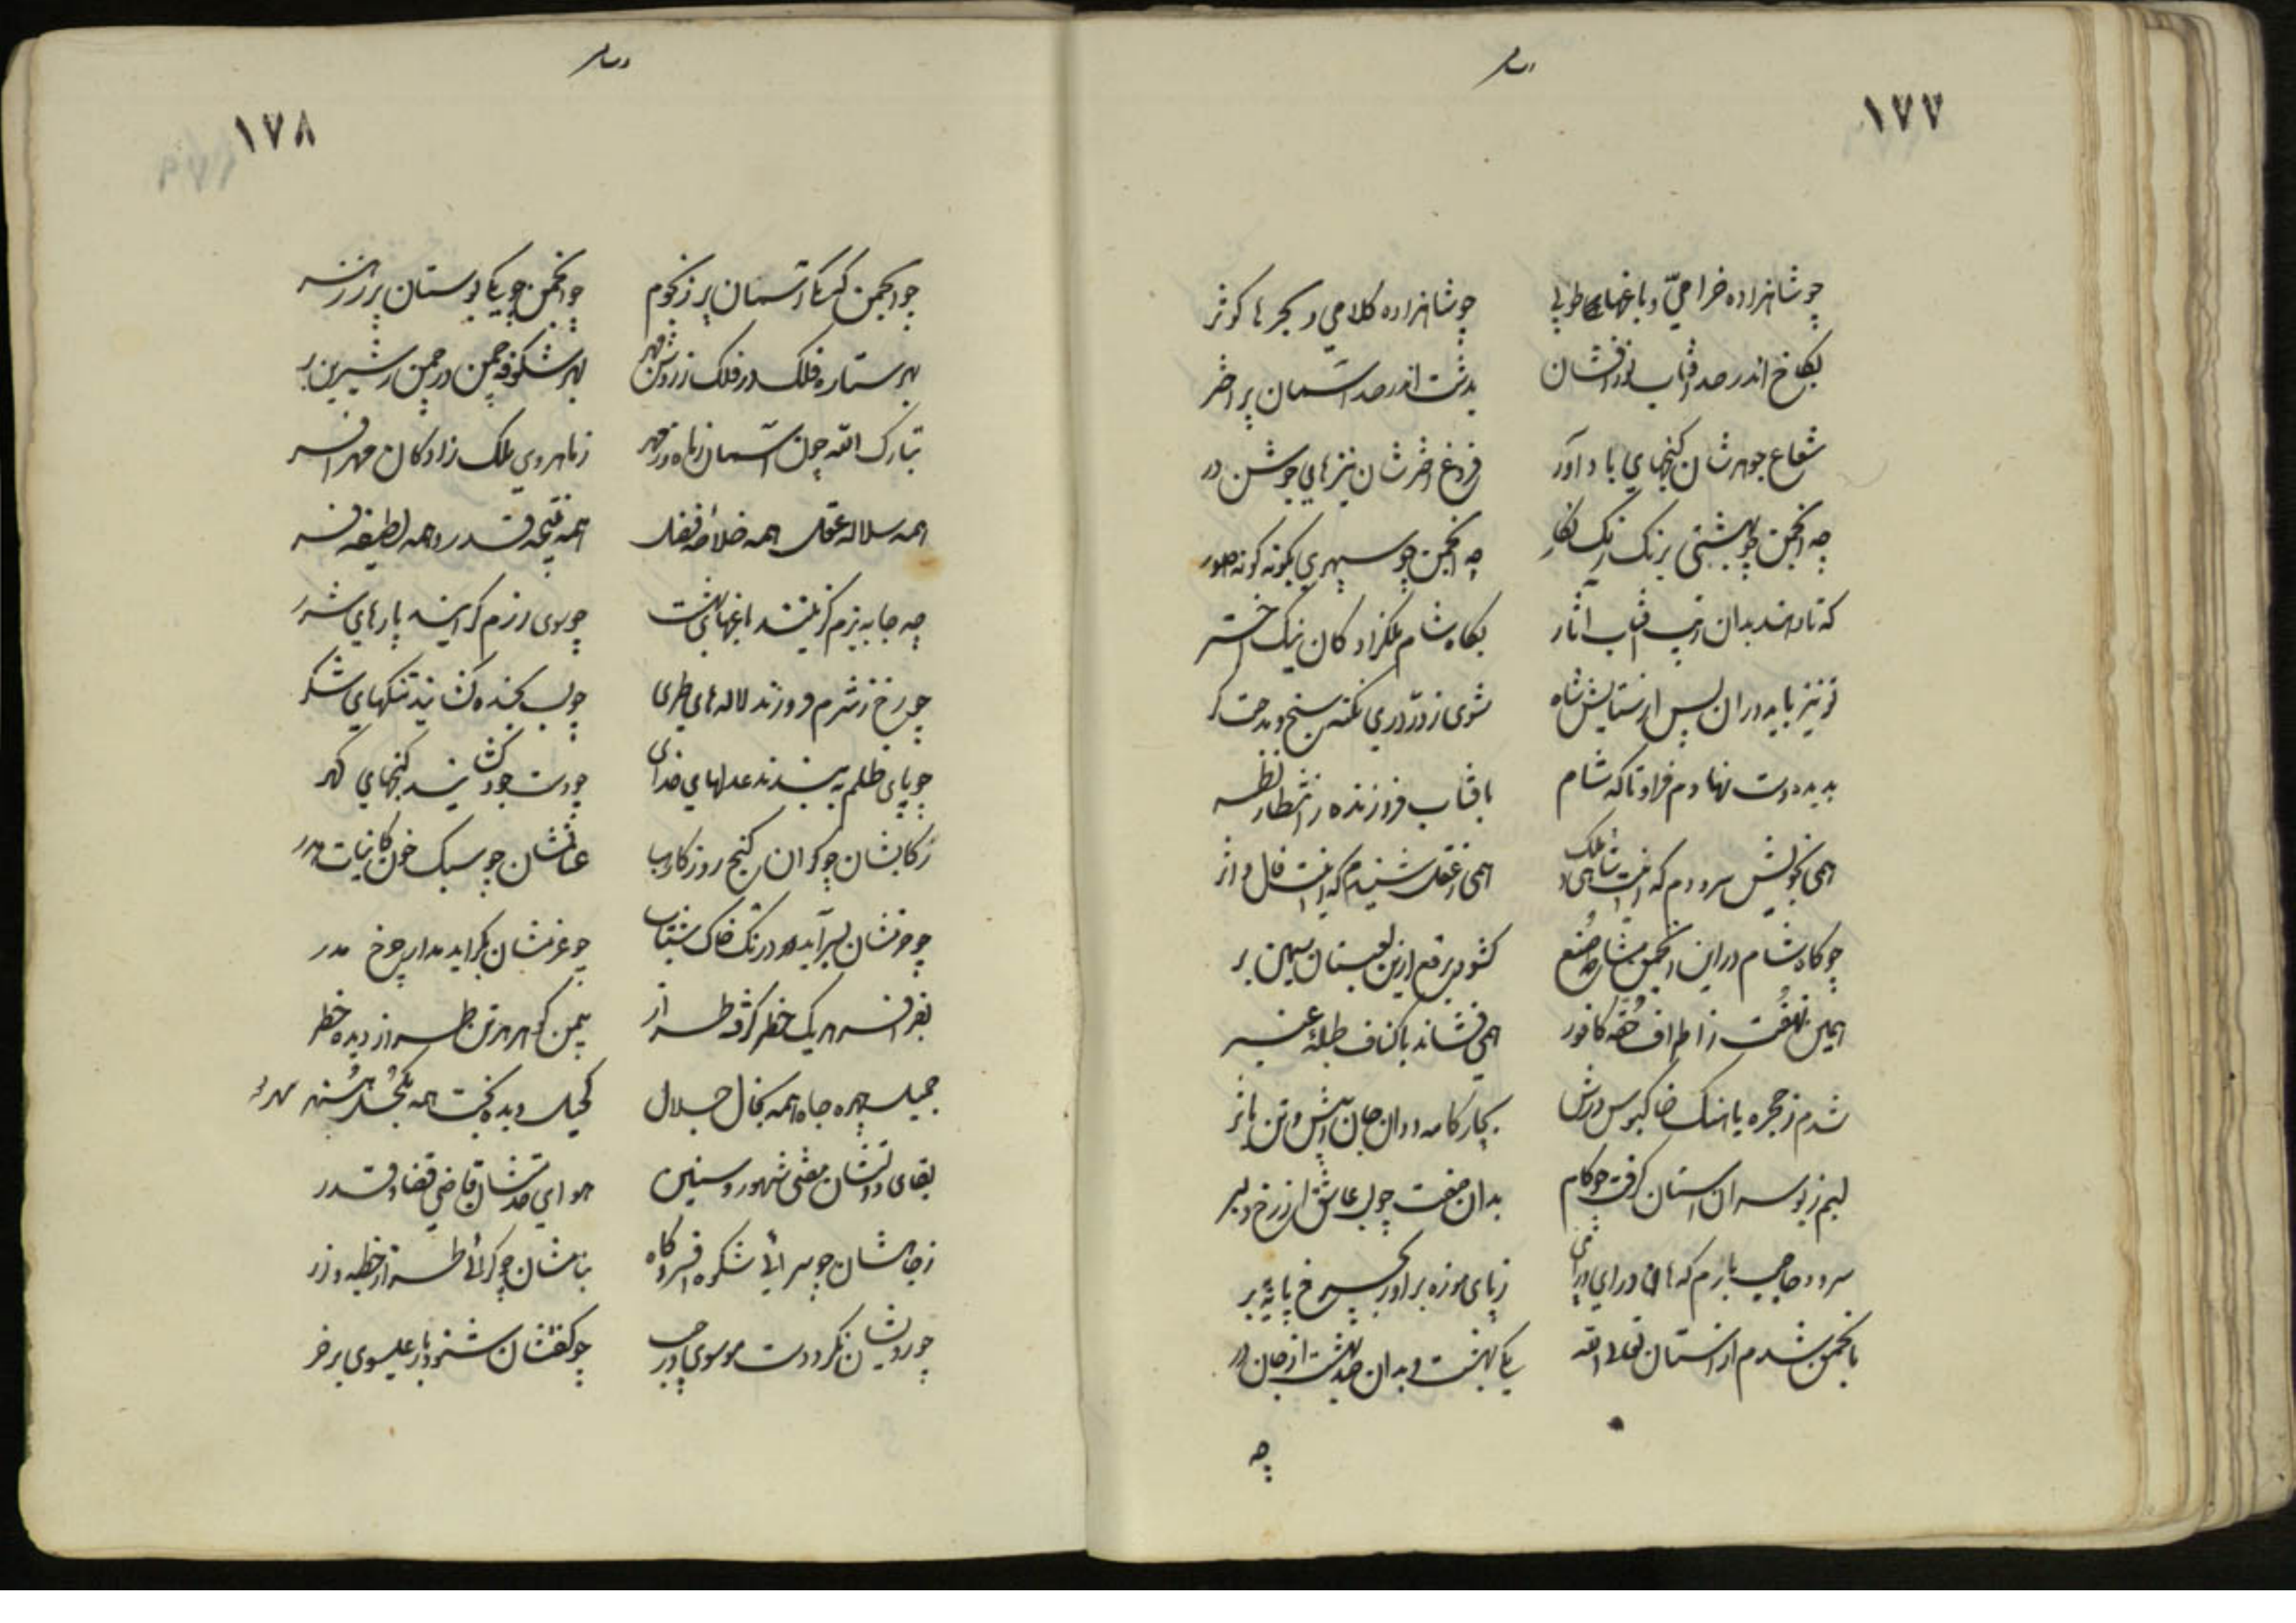 ۱۷۷
چو شاهزاده خرامی و باغها طوبی
چو شاهزاده کلامی و بحرها کوثر
بکاخ اندر صد آفتاب نورافشان
بدشت اندر صد آسمان پر اختر
شعاع جوهرشان گنجهای بادآور
فروغ اخترشان نیزهای جوشن در
چه انجمن چو بهشتی برنگ رنگ نگار
چه انجمن چو سپهری بگونه گونه صور
که تا دهند بدان زیب آفتاب آثار
بگاه شام ملکزادگان نیک اختر
تو نیز باید در ان پس از ستایش شاه
شوی ز درّ دری نکته سنج و مدحت گر
بدیده دست نهادم فراو تا که شام
بافتاب فروزنده ز انتظار نظر
همی بخویش سرودم که
همی ز عقل شنیدم که اینت فال و اثر
چو گاه شام در این انجمن مشاطه صنع
کشود برقع ازین لعبتان سیمین بر
همین نهفت ز اطراف حقه کافور
همی فشاند باکناف طبله عنبر
شدم ز حجره با هنگ خاکبوس درش
لبم ز بوسه ان استان گرفت چو کام
بدان صفت چو لب عاشق از رخ دلبر
سرود حاجب بارم که هان درای
ز پای موزه براور بچرخ پایه بر
بانجمن شدم از استان تعالی الله
یکی بهشت و بدان صد بهشت از جان در
چه
۱۷۸
چو انجمن که یکی آسمان پر ز نجوم
چو انجمن چو یکی بوستان پر ز زهر
بهر ستاره فلک در فلک ز زوشن مهر
بهر شکوفه چمن در چمن ز شیرین بر
تبارک الله چون آسمان ز ماه و ز مهر
ز ماهروی ملک زادگان مهر افسر
همه سلاله عقل همه خلاصه فضل
همه نتیجه قدر و همه لطیفه فر
چه جا به بزم گزینند باغهای بهشت
چو سوی رزم گرایند پارهای شرر
چو رخ ز شرم فروزند لاله های طری
چو لب بخنده گشایند تنگهای شکر
چو پای ظلم ببندند عدلهای خدای
چو دست جود گشایند گنجهای گهر
رکابشان چو گران گنج روزگار هبا
عنانشان چو سبک خون کاینات هدر
چو حزمشان بسر آید درنگ خاک شتاب
چو عزمشان بگراید مدار چرخ مدر
بفر افسر هر یک خطر گرفته طراز
بیمن گوهر هر تن طراز دیده خطر
جمیل چهره جاه همه بخال جلال
کحیل دیده بخت همه بکحل هنر
بقای دولتشان مفتی شهور و سنین
هوای خدمتشان قاضی قضا و قدر
ز جاهشان چو سرائی شکوه افسر و گاه
بنامشان چو گرائی طراز خطبه و زر
چو رویشان نگر دست موسوی در جیب
چو گفتشان شنو باد عیسوی بر خر